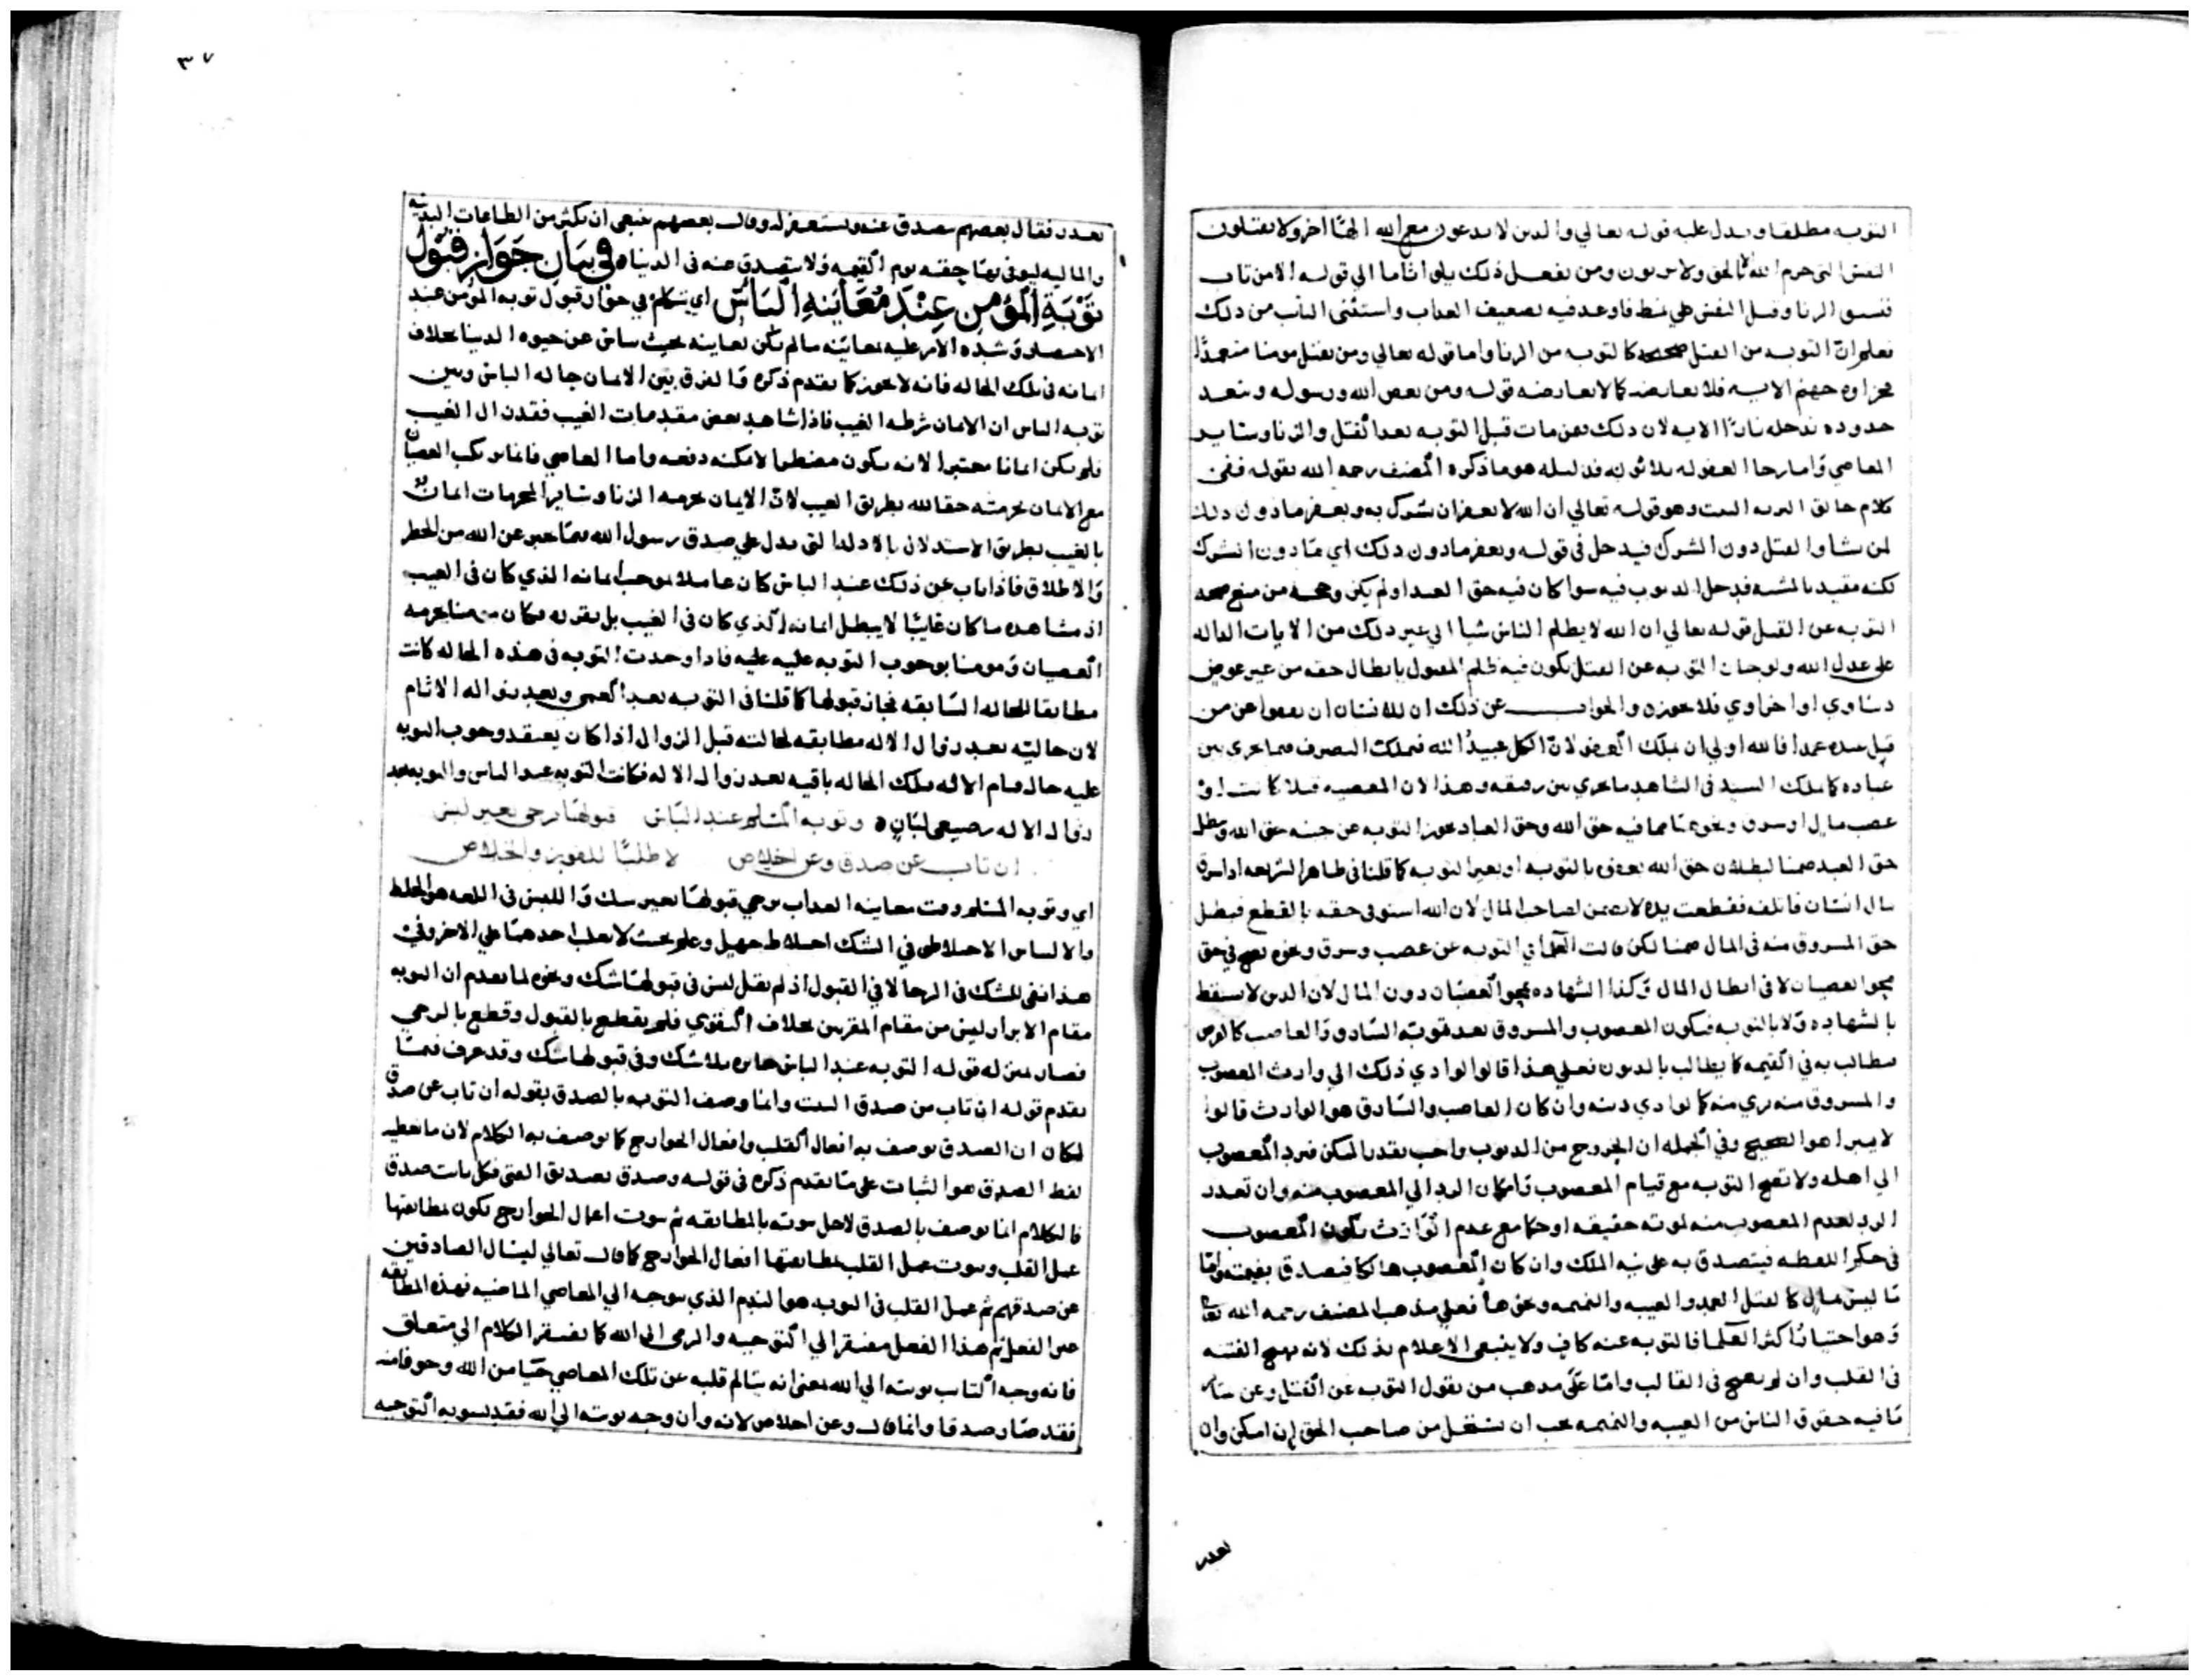 التوبه مطلقا ويدل عليه قوله تعالي والذين لا يدعون مع الله الها اخر ولا يقتلون
النفس التي حرم الله الا بالحق ولا يزنون ومن يفعل ذلك يلق اثاما الي قوله الا من تاب
فنسق الزنا وقتل النفس علي نمط فاوعد فيه تضعيف العذاب واستثنى التايب من ذلك
فعلم ان التوبه من القتل صحيحه كالتوبه من الزنا واما قوله تعالي ومن يقتل مومنا متعمدا
فجزاوه جهنم الايه فلا يعارضه كما لا يعارضه قوله ومن يعص الله ورسوله ويتعد
حدوده يدخله نارا الايه لان ذلك فيمن مات قبل التوبه بعد القتل والزنا وساير
المعاصي واما رجا العفو له بلا توبه فدليله هو ما ذكره المصنف رحمه الله بقوله ففي
كلام خالق البريه البت وهو قوله تعالي ان الله لا يغفر ان يشرك به ويغفر ما دون ذلك
لمن يشا والقتل دون الشرك فيدخل في قوله ويغفر ما دون ذلك اي ما دون الشرك
لكنه مقيد بالمشيه فدخل الذنوب فيه سوا كان فيه حق العبد او لم يكن وحجه من منع صحه
التوبه عن القتل قوله تعالي ان الله لا يظلم الناس شيا الي غير ذلك من الايات الداله
علي عدل الله ولو جازت التوبه عن القتل يكون فيه ظلم المقتول بابطال حقه من غير عوض
دنياوي او اخراوي فلا يجوز والجواب عن ذلك ان للانسان ان يعفوا عن من
قتل عبده عمدا فالله اولي ان يملك العفو لان الكل عبيد الله فيملك التصرف فيما جري بين
عباده كما يملك السيد في الشاهد ما جري بين رقيقه وهذا لان المعصيه قتلا كانت او
غصب مال او سرق ونحوهما مما فيه حق الله وحق العباد يجوز التوبه عن جنسه حق الله ويبطل
حق العبد ضمنا لبطلان حق الله تعالى بالتوبه او بغير التوبه كما قلنا في ظاهر الشريعه اذا سرق
مال انسان فاتلفه فقطعت يده لا يضمن لصاحب المال لان الله استوفي حقه بالقطع فبطل
حق المسروق منه في المال ضمنا لكن قالت العلما في التوبه عن غصب وسرق ونحوه يصح في حق
محو العصيان لا في ابطال المال وكذا الشهاده بمحو العصيان دون المال لان الدين لا يسقط
بالشهاده ولا بالتوبه فيكون المغصوب والمسروق بعد توبه السارق والغاصب كالقرض
يطالب به في القيمه كما يطالب بالديون فعلي هذا قالوا لو ادي ذلك الي وارث المغصوب
والمسروق منه بري منه كما لو ادي دينه وان كان الغاصب والسارق هو الوارث قالوا
لا يبرا هو الصحيح وفي الجمله ان الخروج من الذنوب واجب بقدر الممكن فيرد المغصوب
الي اهله ولا تصح التوبه مع قيام المغصوب وامكان الرد الي المغصوب منه وان تعذر
الرد لعدم المغصوب منه لموته حقيقه او حكما مع عدم الوارث يكون المغصوب
في حكم اللقطه فيتصدق به علي نيه الملك وان كان المغصوب هالكا فيتصدق بقيمته واما
ما ليس بمال كالقتل العمد والغيبه والنميمه ونحوها فعلي مذهب المصنف رحمه الله تعا
وهو اختيار اكثر العلما فالتوبه عنه كاف ولا ينبغي الاعلام بذلك لانه يهيج الفتنه
في القلب وان لم يهج في القالب واما علي مذهب من يقول التوبه عن القتل وعن ساير
ما فيه حقوق الناس من الغيبه والنميمه يجب ان يستحل من صاحب الحق ان امكن وان
تعذر
٣٧
تعذر فقال بعضهم يتصدق عنه ويستغفر له وقال بعضهم ينبغي ان يكثر من الطاعات البدنيه
والماليه ليوفي بها حقه يوم القيمه ولا يتصدق عنه في الدنيا ه في بيان جواز قبول
توبة المؤمن عند معاينة الباس اي نتكلم في جواز قبول توبه المؤمن عند
الاحتضار وشده الامر عليه بمعاينه ما لم يكن يعاينه بحيث يياس عن حيوه الدنيا بخلاف
ايمانه في تلك الحاله فانه لا يجوز كما تقدم ذكره والفرق بين الايمان حاله الباس وبين
توبه الباس ان الايمان شرطه الغيب فاذا شاهد بعض مقدمات الغيب فقد زال الغيب
فلم يكن ايمانا معتبرا لانه يكون مضطرا لا يمكنه دفعه واما العاصي فانما يرتكب العصيان
مع الايمان بحرمته حقا لله بطريق الغيب لان الايمان بحرمه الزنا وساير المحرمات ايمان
بالغيب بطريق الاستدلال بالادله التي تدل علي صدق رسول الله فيما يخبر عن الله من الحظر
والاطلاق فاذا تاب عن ذلك عند الباس كان عاملا بموجب ايمانه الذي كان في الغيب
اذ مشاهده ما كان غايبا لا يبطل ايمانه الذي كان في الغيب بل يقرره فكان مومنا بحرمه
العصيان ومومنا بوجوب التوبه عليه فاذا وجدت التوبه في هذه الحاله كانت
مطابقا للحاله السابقه فجاز قبولها كما قلنا في التوبه بعد العمي وبعد زوال اله الاثام
لان حاليته بعد زوال الاله مطابقه لحالته قبل الزوال اذا كان يعتقد وجوب التوبه
عليه حال قيام الاله وتلك الحاله باقيه بعد زوال الاله فكانت التوبه عند الباس والتوبه بعد
زوال الاله رضيعي لبان ه وتوبه المسلم عند الباس قبولها رجي بغير لبس
ان تاب عن صدق وعن اخلاص لا طلبا للفوز والخلاص
اي وتوبه المسلم وقت معاينه العذاب يرجي قبولها بغير شك واللبس في اللغه هو الخلط
والالتباس الاختلاط وفي الشك اختلاط جهل وعلم بحيث لا يغلب احدهما علي الاخر وفي
هذا نفي للشك في الرجا لا في القبول اذ لم يقل ليس في قبولها شك ونحوه لما تقدم ان التوبه
مقام الابرار ليس من مقام المقربين بخلاف التقوي فلم يقطع بالقبول وقطع بالرجي
فصار بمنزله قوله التوبه عند الباس جايزه بلا شك وفي قبولها شك وقد عرف فيما
تقدم قوله ان تاب من صدق البت وانما وصف التوبه بالصدق بقوله ان تاب عن صدق
لمكان ان الصدق يوصف به افعال القلب وافعال الجوارح كما يوصف به الكلام لان ما يعطيه
لفظ الصدق هو الثبات علي ما تقدم ذكره في قوله وصدق بصديق الغي فكل ثابت صدق
فالكلام انما يوصف بالصدق لاجل ثبوته بالمطابقه ثم ثبوت اعمال الجوارح يكون بمطابقتها
عمل القلب وثبوت عمل القلب بمطابقتها افعال الجوارح كما قال تعالي ليسال الصادقين
عن صدقهم ثم عمل القلب في التوبه هو الندم الذي يتوجه الي المعاصي الماضيه فهذه المطابقه
عين الفعل ثم هذا الفعل مفتقر الي التوجيه والرمي الي الله كما يفتقر الكلام الي متعلق
فانه وجه التايب توبته الي الله بمعني انه يتالم قلبه عن تلك المعاصي حيا من الله وخوفا منه
فقد صار صدقا وانما قال وعن اخلاص لانه وان وجه توبته الي الله فقد يشوبه التوجيه